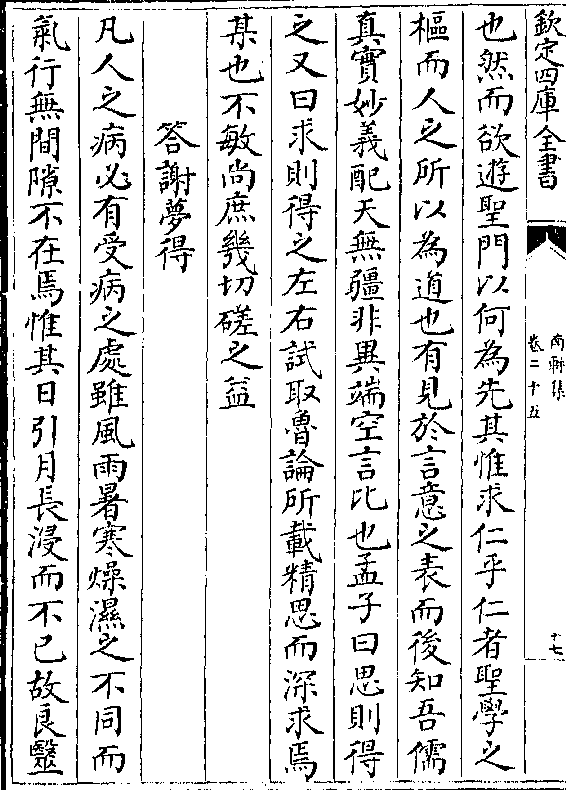 欽定四庫全書
南軒集
卷二十五
十七
也然而欲遊聖門以何為先其惟求仁乎仁者聖學之
樞而人之所以為道也有見於言意之表而後知吾儒
真實妙義配天無疆非異端空言比也孟子曰思則得
之又曰求則得之左右試取魯論所載精思而深求焉
某也不敏尚庶幾切磋之益
答謝夢得
凡人之病必有受病之處雖風雨暑寒燥濕之不同而
氣行無間隙不在焉惟其日引月長浸而不已故良毉